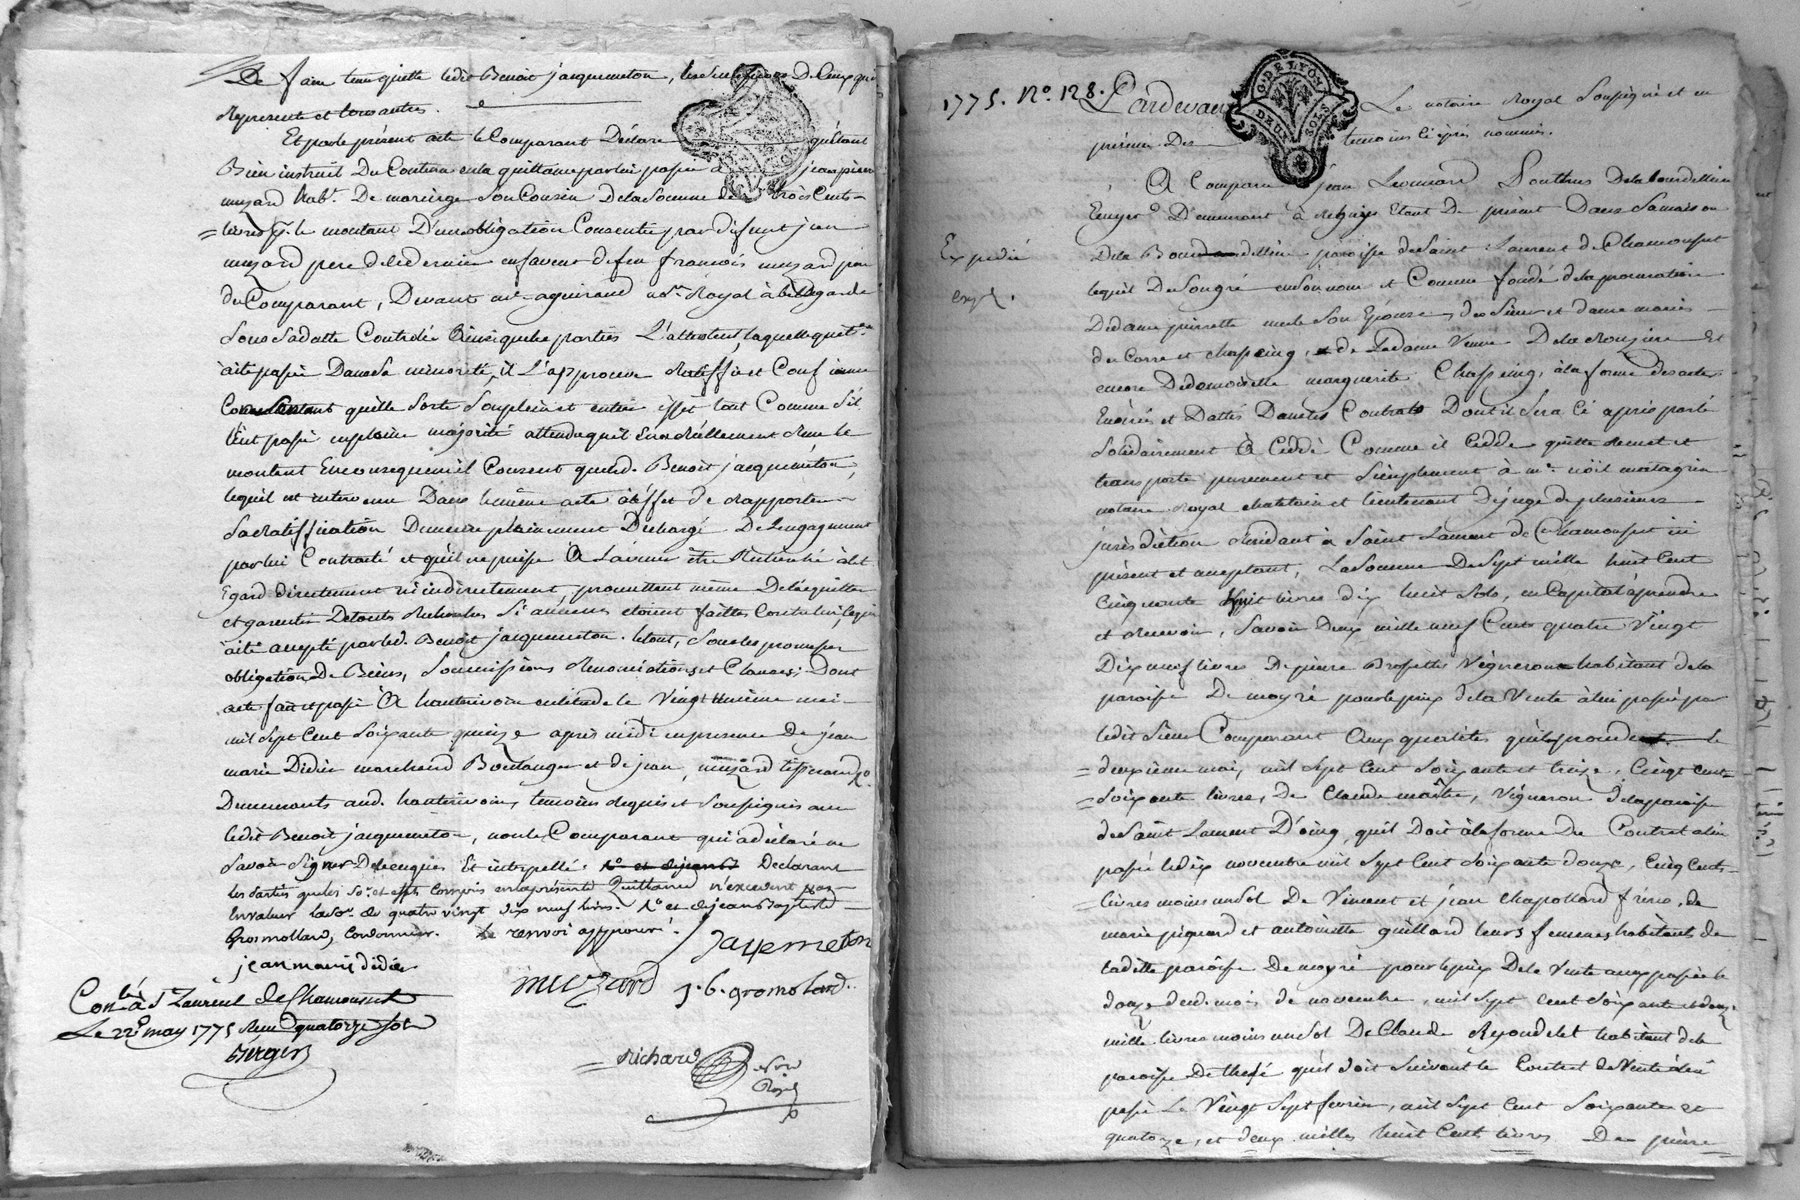 De faire tenir quitte ledit Benoit jacquemeton, les susdits De Ceux qui
Représente et tous autres.
Et par le présent acte le Comparant Déclare qu'étant
Bien instruit Du Contenu en la quittance par lui passée à jean pierre
muzard hab.t De mariage Son Cousin De la Somme de trois Cents
livres le montant D'une obligation Consentie par défunt jean
muzard pere de le dernier en faveur de feu francois muzard pere
du Comparant, Devant me aguiraud no.re Royal à
Sous Sa datte Controlée Ainsi que les parties L'attestent, laquelle quit.ce
aité passée Dans sa minorité, il L'approuve Ratiffie et Confirme
qu'elle Sorte Son plein et entier effet tout Comme S'il
l'eut passé en pleine majorité attendu qu'il en a réellement Reçu le
montant En conséquence il Consent que led. Benoit jacquemeton,
lequel est intervenu Dans le même acte à l'effet de Rapporter
Sa Ratiffication Demeure pleinement Déchargé De l'engagement
par lui Contracté et qu'il ne puisse à l'avenir être Recherché à cet
Egard directement ni indirectement, promettant même De l'acquitter
et garentir De touts Recherches Si aucunes etoient faittes Contre lui, Ce qui
aité accepté par led. Benoit jacquemeton. le tout, Sous les promesses
obligations De Biens, Soumissions Renonciations et Clauses; Dont
acte fait et passé à hauterivoire en létude le Vingt unième mai
mil Sept Cent Soixante quinze après midi en presence De jean
marie Didier marchand Boulanger et de jean muzard
Demeurants aud. hauterivoire, temoins requis et Soussignés avec
ledit Benoit jacquemeton, non le Comparant qui a déclaré ne
Savoir Signer De ce enquis Et interpellé. Déclarant
les parties que les So. et effets Compris en la présente Quittance n'excedent pas
En valeur la So. de quatre vingt dix neuf livres. R.o et de jean Baptiste
Gromollard, Cordonnier. Le renvoi approuvé.
Jaqemeton
jean marie didier
muzard J.b. gromolard.
Con.lé à S.t Laurent de Chamousset
Le 22.e may 1775 Reçu quatorze sols
Bergier
Richard
no.re
Royal
1775. N.o 128.
Pardevant Le notaire Royal Soussigné et en
présence Des temoins Ci après nommés.
A Comparu jean Leonnard Southus De la bourdelliere
Ecuyer Demeurant à étant De présent Dans Sa maison
Expedié
De la Bourdelliere paroisse de Saint Laurent de Chamousset
lequel De Son gré en Son nom et Comme fondé de la procuration
De dame pierrette merle Son Epouse, des Sieur et dame mariés
de Corre et chasseing, de La dame Veuve De la Roujiere Et
encore De demoiselle marguerite Chasseing, à la forme des actes
Enoncés et Dattés Dans les Contrats Dont il Sera Ci après parlé
Solidairement à Cédé Comme il Cedde quitte Remet et
transporte purement et Simplement à m.e noël matagrin
notaire Royal chatelain et lieutenant De juge de plusieurs
jurisdictions Residant à Saint Laurent de Chamousset ici
présent et acceptant, La Somme De Sept mille huit Cent
Cinquante huit livres dix huit Sols, en Capital à prendre
et Recevoir, Savoir Deux mille neuf Cents quatre Vingt
Dix neuf livres De pierre Brossette Vigneron habitant de la
paroisse De moyré pour le prix de la Vente à lui passée par
ledit Sieur Comparant Aux qualités qu'il procede le
deuxième mai, mil Sept Cent Soixante et treize, Cinq Cent
Soixante livres, De Claude maître, Vigneron De la paroisse
de Saint Laurent D'oing, qu'il Doit à la forme Du Contrat à lui
passé le dix novembre mil Sept Cent Soixante douze, Cinq Cents
livres moins un Sol De Vincent et jean Chapollard frères, de
marie piguard et antoinette guillard leurs femmes habitants de
la ditte paroisse De moyré pour le prix De la Vente aux passée le
douze dud. mois de novembre, mil Sept Cent Soixante et douze
mille livres moins un Sol De Claude Reyondelet habitant de la
paroisse De thezé qu'il doit Suivant le Contrat de Vente à lui
passé Le Vingt Sept fevrier, mil Sept Cent Soixante et
quatorze, et deux milles huit Cent livres De pierre